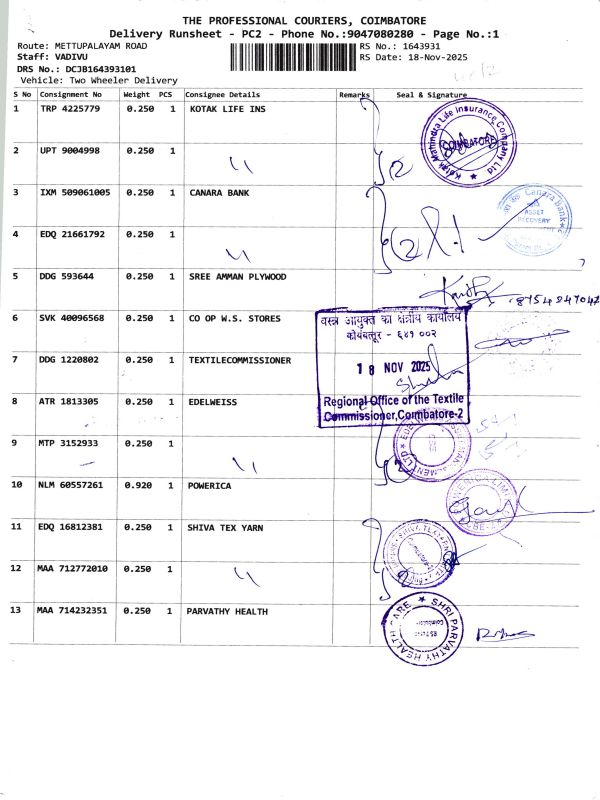 THE PROFESSIONAL COURIERS, COIMBATORE
Delivery Runsheet - PC2 - Phone No.:9047080280 - Page No.:1
Route: METTUPALAYAM ROAD RS No.: 1643931
Staff: VADIVU RS Date: 18-Nov-2025
DRS No.: DCJB164393101
Vehicle: Two Wheeler Delivery
S No Consignment No Weight PCS Consignee Details Remarks Seal & Signature
1 TRP 4225779 0.250 1 KOTAK LIFE INS
Kotak Mahindra Life Insurance Company Ltd
COIMBATORE
2 UPT 9004998 0.250 1 "
3 IXM 509061005 0.250 1 CANARA BANK
Canara Bank
ASSET
RECOVERY
4 EDQ 21661792 0.250 1 "
5 DDG 593644 0.250 1 SREE AMMAN PLYWOOD
6 SVK 40096568 0.250 1 CO OP W.S. STORES
वस्त्र आयुक्त का क्षेत्रीय कार्यालय
कोयंबत्तूर - ६४१ ००२
7 DDG 1220802 0.250 1 TEXTILECOMMISSIONER
18 NOV 2025
8 ATR 1813305 0.250 1 EDELWEISS
Regional Office of the Textile
Commissioner, Coimbatore-2
9 MTP 3152933 0.250 1 "
10 NLM 60557261 0.920 1 POWERICA
11 EDQ 16812381 0.250 1 SHIVA TEX YARN
12 MAA 712772010 0.250 1 "
13 MAA 714232351 0.250 1 PARVATHY HEALTH
SHRI PARVATHY HEALTH CARE